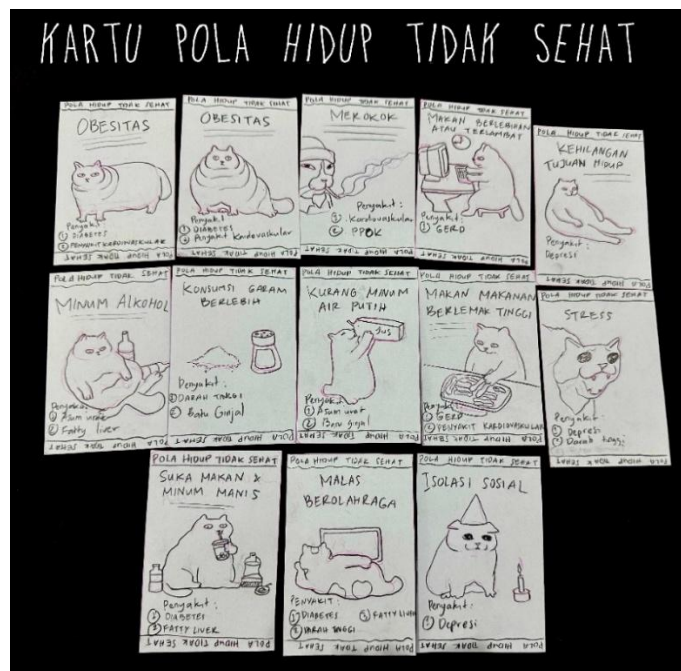 KARTU POLA HIDUP TIDAK SEHAT
POLA HIDUP TIDAK SEHAT
OBESITAS
Penyakit
① DIABETES
② PENYAKIT KARDIOVASKULAR
POLA HIDUP TIDAK SEHAT
POLA HIDUP TIDAK SEHAT
OBESITAS
Penyakit
① DIABETES
② Penyakit Kardiovaskular
POLA HIDUP TIDAK SEHAT
POLA HIDUP TIDAK SEHAT
MEROKOK
Penyakit:
① Kardiovaskular
② PPOK
POLA HIDUP TIDAK SEHAT
POLA HIDUP TIDAK SEHAT
MAKAN BERLEBIHAN
ATAU TERLAMBAT
Penyakit:
① GERD
POLA HIDUP TIDAK SEHAT
POLA HIDUP TIDAK SEHAT
KEHILANGAN
TUJUAN HIDUP
Penyakit:
Depresi
POLA HIDUP TIDAK SEHAT
POLA HIDUP TIDAK SEHAT
MINUM ALKOHOL
Penyakit:
① Asam urat
② Fatty liver
POLA HIDUP TIDAK SEHAT
POLA HIDUP TIDAK SEHAT
KONSUMSI GARAM
BERLEBIH
Penyakit:
① DARAH TINGGI
② Batu Ginjal
POLA HIDUP TIDAK SEHAT
POLA HIDUP TIDAK SEHAT
KURANG MINUM
AIR PUTIH
JUS
Penyakit:
① Asam urat
② Batu ginjal
POLA HIDUP TIDAK SEHAT
POLA HIDUP TIDAK SEHAT
MAKAN MAKANAN
BERLEMAK TINGGI
Penyakit
① GERD
② PENYAKIT KARDIOVASKULAR
POLA HIDUP TIDAK SEHAT
POLA HIDUP TIDAK SEHAT
STRESS
Penyakit:
① Depresi
② Darah tinggi
POLA HIDUP TIDAK SEHAT
POLA HIDUP TIDAK SEHAT
SUKA MAKAN &
MINUM MANIS
Penyakit:
① DIABETES
② FATTY LIVER
POLA HIDUP TIDAK SEHAT
POLA HIDUP TIDAK SEHAT
MALAS
BEROLAHRAGA
PENYAKIT:
① DIABETES ③ FATTY LIVER
② DARAH TINGGI
POLA HIDUP TIDAK SEHAT
POLA HIDUP TIDAK SEHAT
ISOLASI SOSIAL
Penyakit:
① Depresi
POLA HIDUP TIDAK SEHAT